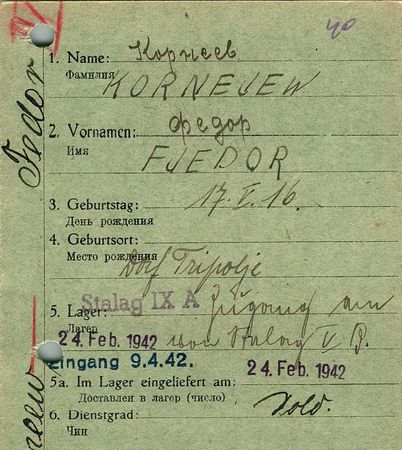 40
Fedor
Корнеев
1. Name:
Фамилия
KORNEJEW
2. Vornamen: Федор
Имя
FJEDOR
3. Geburtstag: 17.I.16.
День рождения
4. Geburtsort:
Место рождения Dorf Tripolje
Stalag IX A
5. Lager: Zugang am
Лагерь
24. Feb. 1942 von Stalag V B.
Eingang 9.4.42.
24. Feb. 1942
5a. Im Lager eingeliefert am:
Доставлен в лагерь (число)
6. Dienstgrad: Sold.
Чин